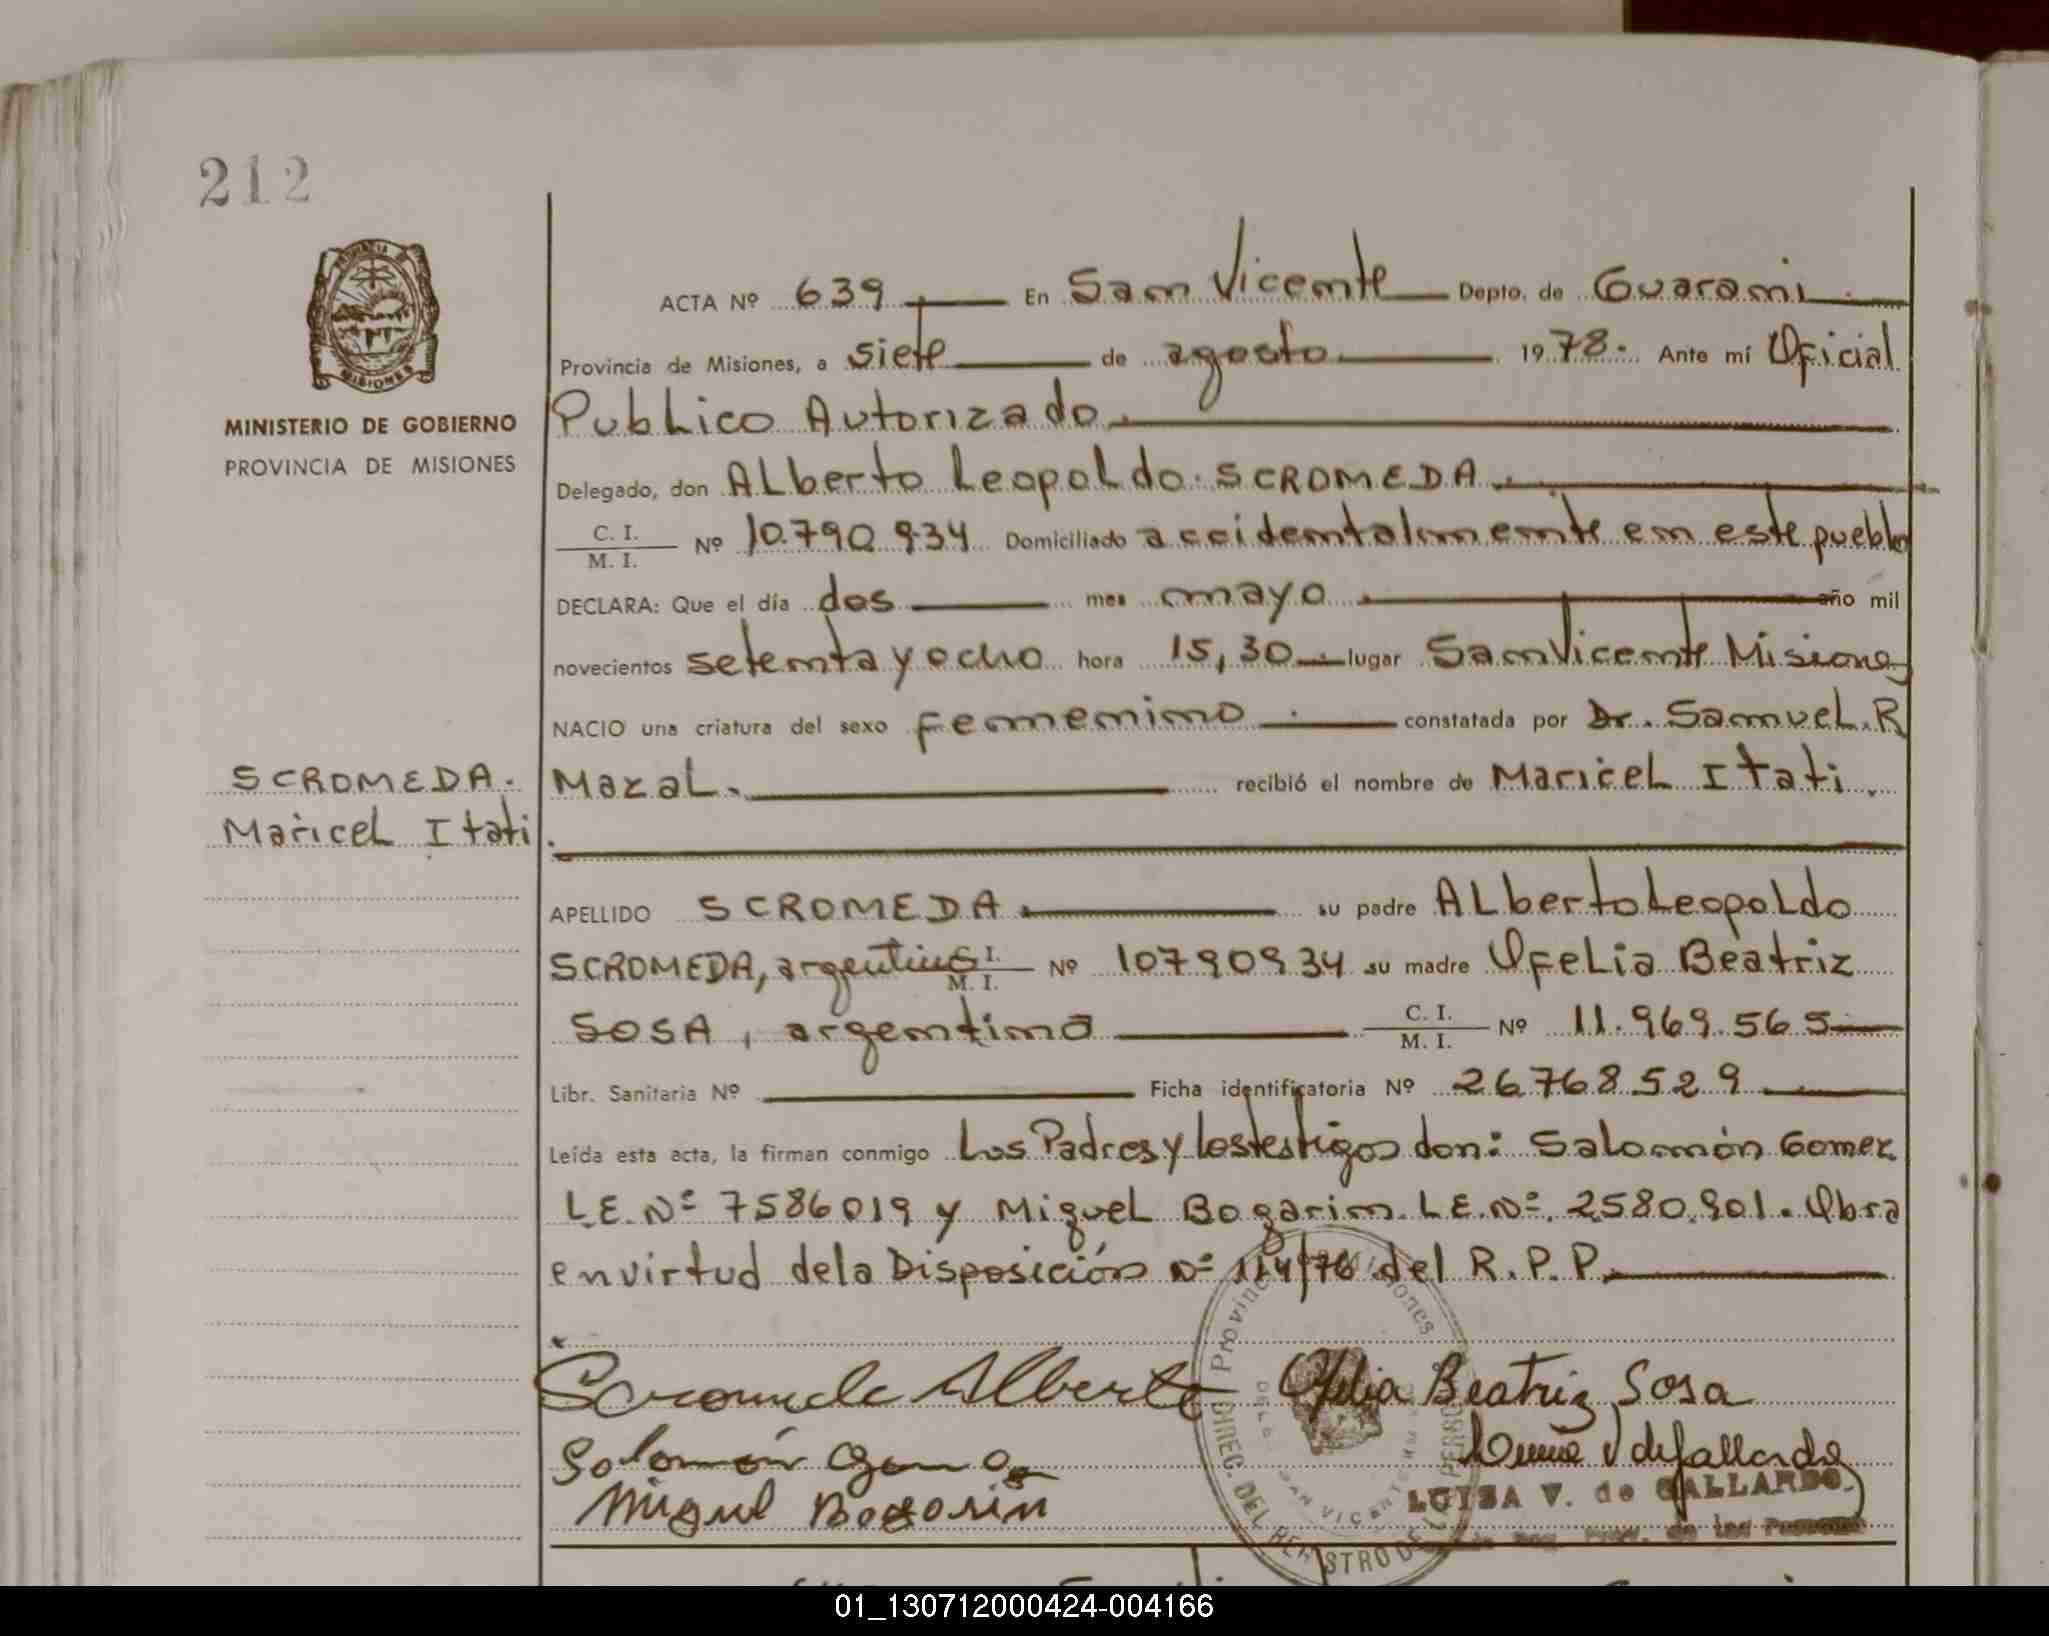 212
PROVINCIA DE
MISIONES
MINISTERIO DE GOBIERNO
PROVINCIA DE MISIONES
ACTA Nº 639 En San Vicente Depto. de Guarani
Provincia de Misiones, a siete de agosto 1978. Ante mí Oficial
Publico Autorizado.
Delegado, don Alberto Leopoldo SCROMEDA.
C. I.
M. I. Nº 10.790.934 Domiciliado accidentalmente en este pueblo
DECLARA: Que el día dos mes mayo año mil
novecientos setenta y ocho hora 15,30 lugar San Vicente Misiones
NACIO una criatura del sexo femenino constatada por Dr. Samuel R
Mazal. recibió el nombre de Maricel Itati.
SCROMEDA.
Maricel Itati
APELLIDO SCROMEDA su padre Alberto Leopoldo
SCROMEDA, argentino C. I.
M. I. Nº 10790934 su madre Ofelia Beatriz
SOSA, argentina C. I.
M. I. Nº 11.969.565
Libr. Sanitaria Nº Ficha identificatoria Nº 26768529
Leída esta acta, la firman conmigo Los Padres y los testigos don: Salomón Gomez
L.E. Nº 7586019 y Miguel Bogarin L.E. Nº. 2580.901. Obra
en virtud de la Disposición Nº 114/76 del R.P.P.
Scromeda Alberto Ofelia Beatriz Sosa
Salomón Gomez Luisa V de Gallardo
Miguel Bogarin LUISA V. de GALLARDO
Provincia Misiones
DIREC. DEL REGISTRO DE LAS PERSO
SAN VICENTE
01_130712000424-004166